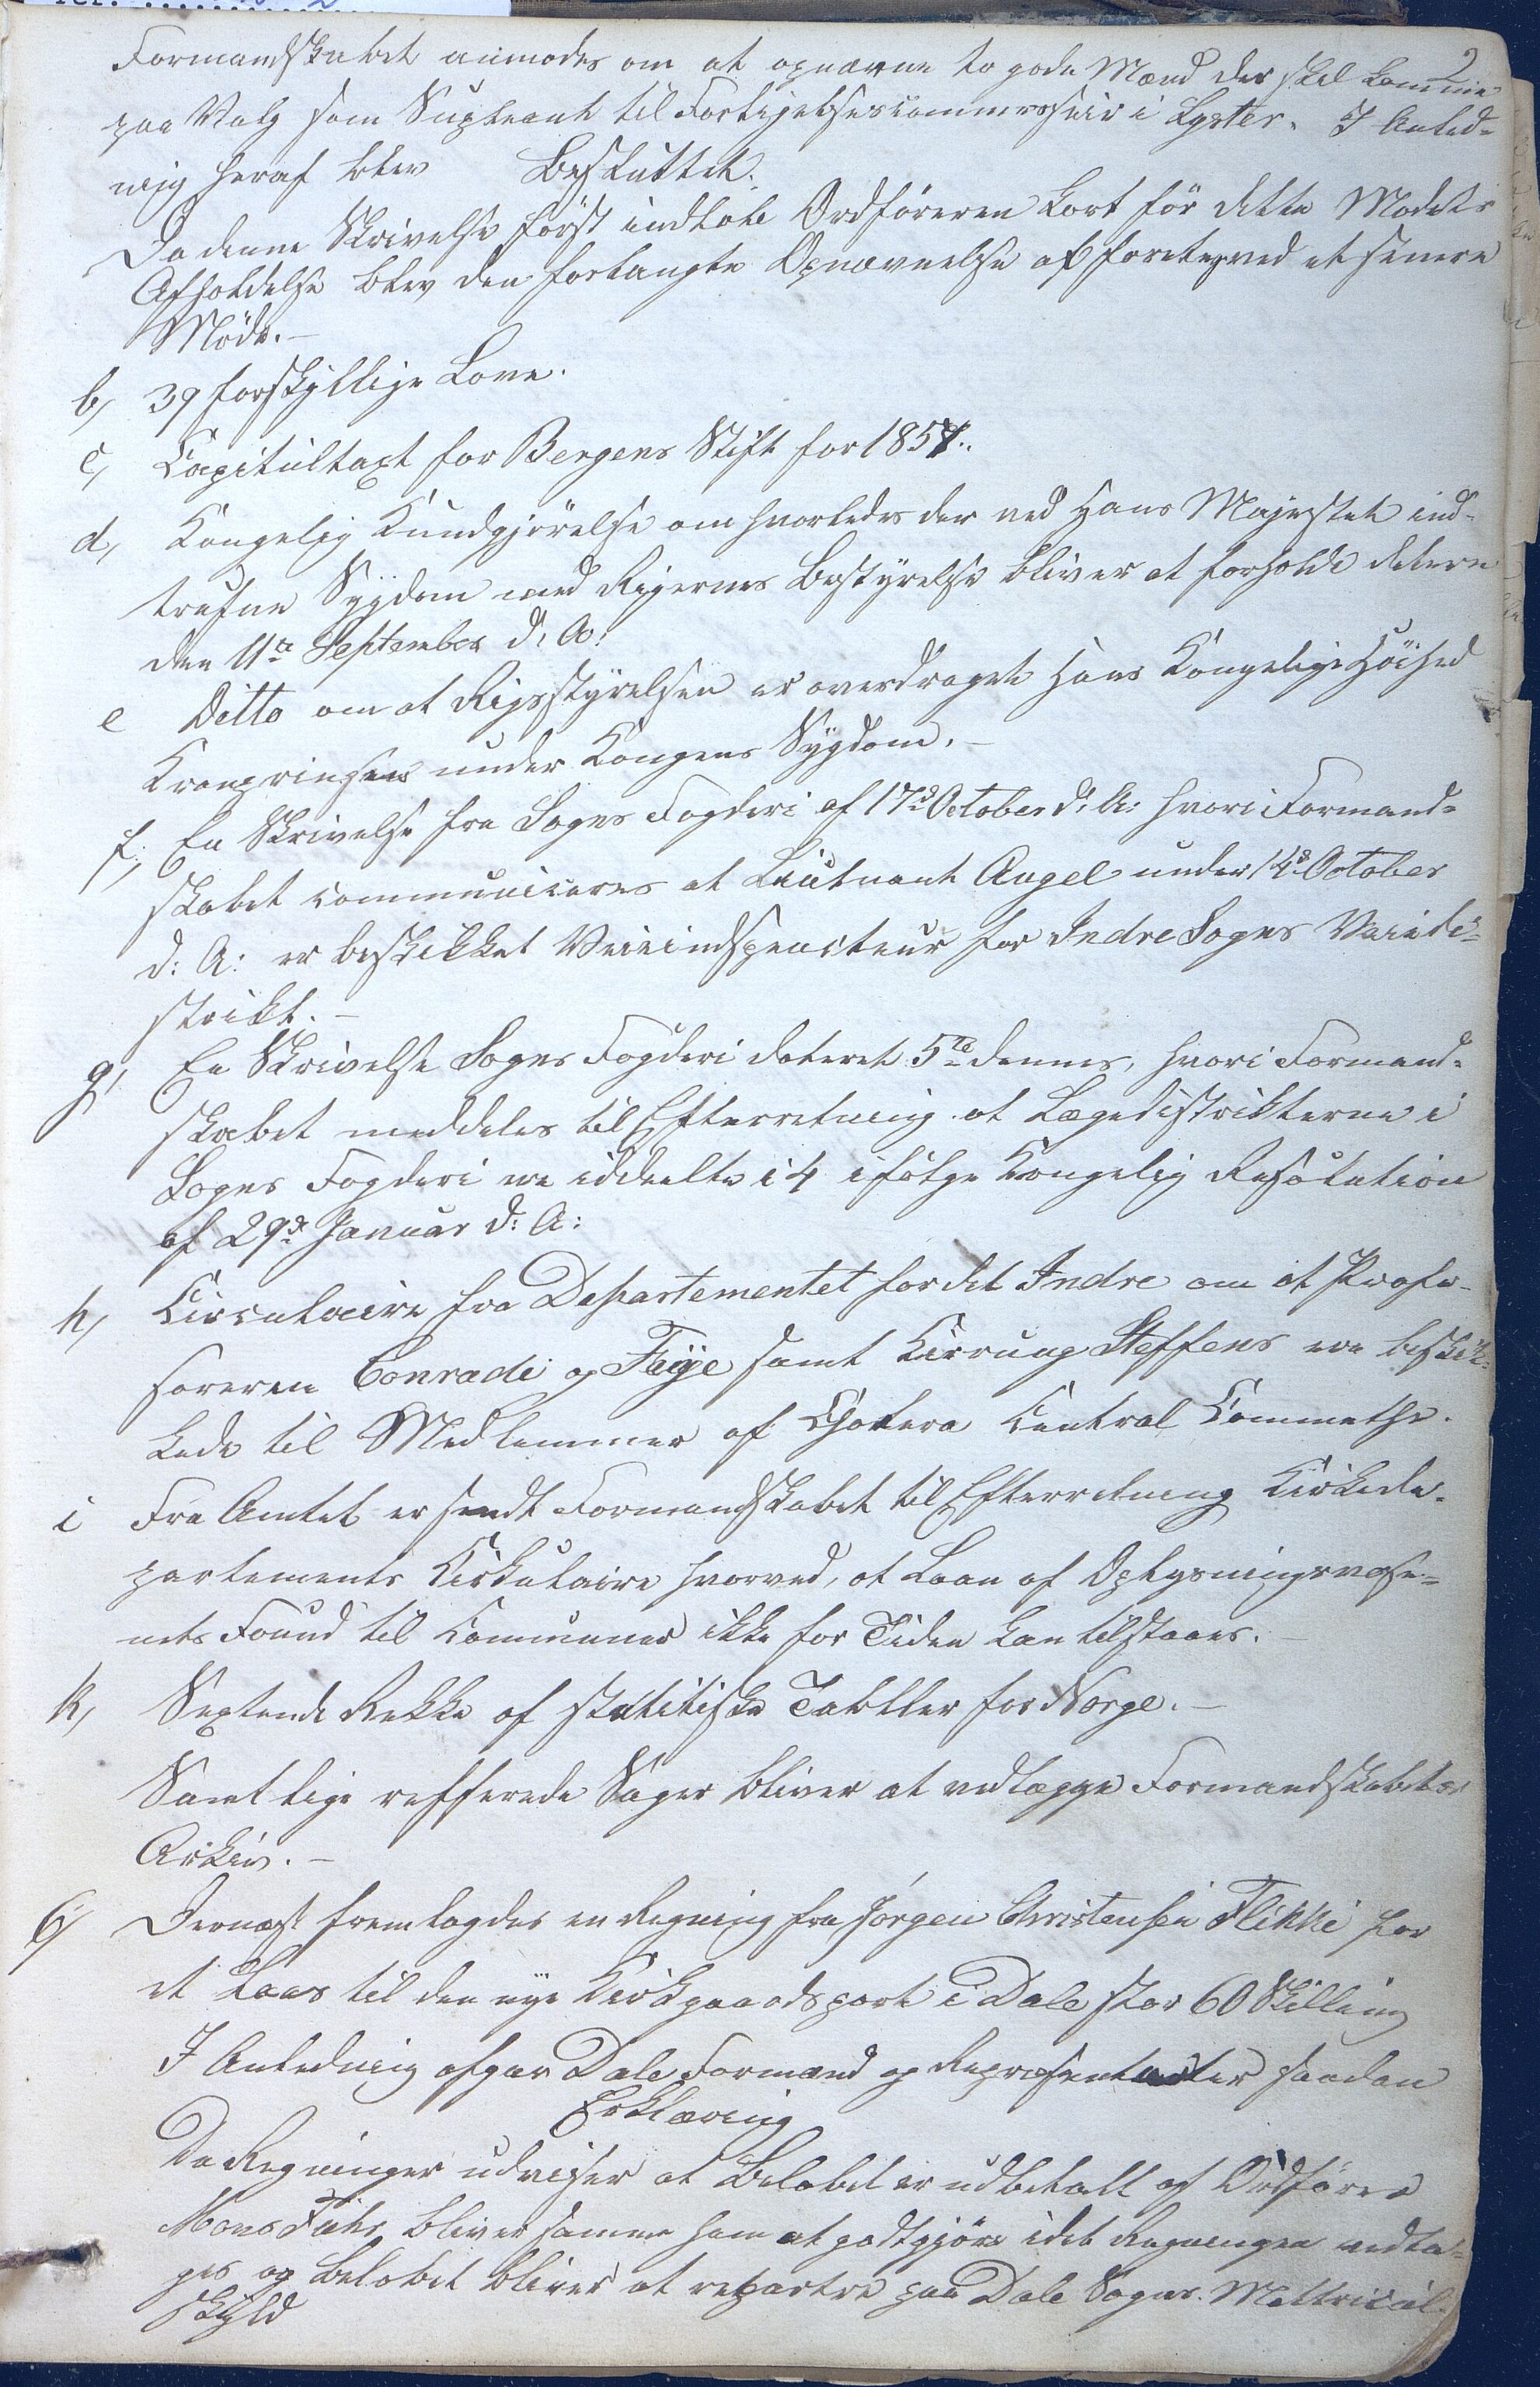 2
Formandskabet anmodes om at opnævne to gode Mænd der skal komme
paa Valg som Supleant til Forligelsescommissair i Lyster. I Anled-
nig heraf blev Besluttet.
Da denne Skrivelse först indlob Ordföreren kort för dette Mödets
Afholdelse blev den forlangte Opnævnelse at foretages ved et senere
Möde.-
b, 39 forskjellige Love.
c, Capitultaxt for Bergens Stift for 1857.
d, Kongelig Kundgjörelse om hvorledes der ved Hans Majestet ind-
trufne Sygdom med Rigernes Bestyrelse bliver at forholde dateret
den 11te September d. A.
e Ditto om at Rigsstyrelsen er overdraget Hans Kongelige Höihed
Kronprinsen under Kongens Sygdom.-
f, En Skrivelse fra Sogns Fogderi af 17de October d: A: hvori Formand-
skabet communiceres at Lieutnant Angel under 14de October
d: A: er beskikket Veiindspecteur for Indre Sogns Veiedi-
strikt.-
g, En Skrivelse Sogns Fogderi dateret 5te dennes, hvori Formand-
skabet meddeles til Efterretning at Lægedistrikterne i
Sogns Fogderi ere iddeelte i 4 ifölge Kongelig Resolution
af 29de Januar d: A:
h, Circulaire fra Departementet for det Indre om at Profe-
sorerne Conradi og Faye samt Kirrurg Steffens ere beskik-
kede til Medlemmer af Cholera Central Commetse.
i Fra Amtet er sendt Formandskabet til Efterretning Kirkede-
partements Cirkulaire hvorved, at Laan af Oplysningsvæse-
nets Found til Communer ikke for Tiden kan tilstaaes.-
k, Sextende Rekke af statitiske Tabller for Norge.-
Samtlige refferede Sager bliver at vedlægge Formandskabets
Arkiv.-
6, Dernæst fremlagdes en Regning fra Jörgen Christensen Flikki for
et Laas til den nye Kirkgaardsport i Dale stor 60 Skilling
I Anledning afgav Dale Formænd og Repræsentanter saadan
Erklæring
Da Regninger udviser at Belöbet er udbetalt af Ordförer
Mons Fuhr bliver samme ham at godtgjöre idet Regningen vedta-
ges og Belöbet bliver at repartere paa Dale Sogns Mattricül-
skyld